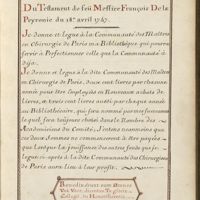 Du Testament de feû Messire François De la
Peyronie du 18e avril 1747.
Je donne et legue à la Communauté des Maîtres
en Chirurgie de Paris ma Bibliothéque qui pourra
servir à Perfectionner celle que la Communauté a
déja.
Je donne et legue à la dite Communauté des Maîtres
en Chirurgie de Paris, deux cent livres par chacune
année pour être Employées en Nouveaux achats de
livres, et trois cent livres aussi par chaque année
au Bibliothécaire, qui sera nommé par
quel sera toujours choisi dans le Nombre des
Academiciens du Comité; J'entens neanmoins que
ces deux Sommes ne commenceront à être payées
que lorsque la jouissance des autres fonds que je
legue cy-après à la dite Communauté des Chirurgiens
de Paris aura lieu à leur profit.